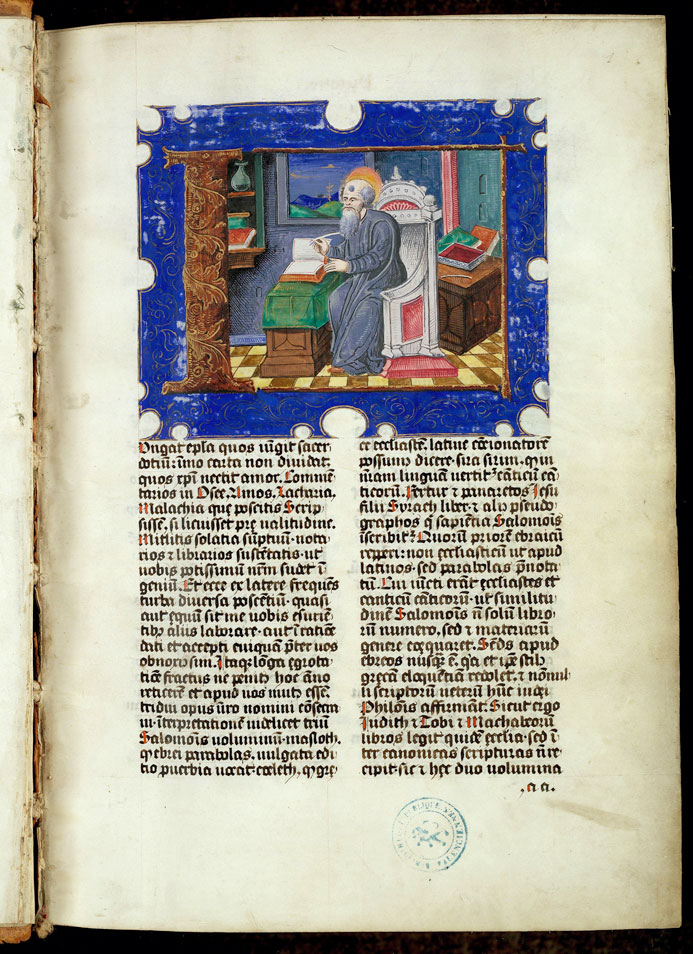 Iungat epl̃a quos iũgit sacer
dotiũ: ĩmo carta non diuidat,
quos xp̃i nectit amor. Commẽ
tarios in Osee, Amos, Zacharia,
Malachia que poscitis Scrip
sissẽ, si licuisset prę ualitudine.
Mittitis solatia sũptuũ. nota
rios & librarios sustẽtatis. ut
uobis potissimũ nr̃m sudet ĩ
geniũ. Et ecce ex latere freq̃ns
turba diuersa poscẽtiũ. quasi
aut equũ sit me uobis esuriẽ
tib⁹ aliis laborare. aut ĩ ratiõe
dati et accepti cuiquã pr̃ter uos
obnoxi⁹ sim. Itaq; lõga egrota
tiõe fractus ne penit⁹ hoc ãno
reticerẽ et apud uos mut⁹ essẽ.
tridui opus ur̃o nomini cõsecra
ui. ĩterpretationẽ uidelicet triũ
Salomõis uoluminũ. masloth.
q̃ ebrei parabolas. uulgata edi
tio p̃uerbia uocat: cœleth, q̃ gręce
ecclesiastẽ. latine cõcionatorẽ
possum⁹ dicere. sira sirim. q̃ in
nr̃am linguãm uertit᷑ cãticũ cã
ticorũ. Fertur & panaretos Jesu
filii Syrach liber. & ali⁹ pseudo
graphos q̃ sapiẽtia Salomõis
ĩscribit᷑. Quorũ priorẽ ebraicũ
repperi: non ecclesiasticũ ut apud
latinos. sed parabolas p̃nota
tũ. Cui iũcti erãt ecclesiastes et
canticũ cãticorũ. ut similitu
dinẽ Salomõis ñ solũ libro
rũ numero, sed & materiarũ
genere coęquaret. Scd̃s apud
ebreos nusq̃ ẽ. q̃a et ip̃e stil⁹
grecã eloquẽtiã redolet. & nõnul
li scriptorũ ueterũ hũc iudęi
Philonis affirmãt. Sicut ergo
Judith & Tobi & Machabeorũ
libros legit quidẽ ecclesia. sed ĩ
ter canonicas scripturas ñ re
cipit. sic & hec duo uolumina